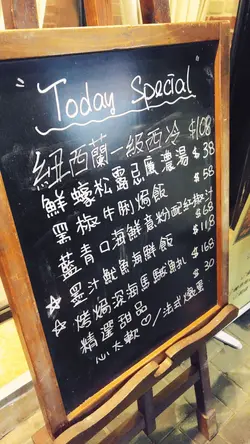 Today Special
紐西蘭一級西冷 $108
鮮蠔松露忌廉濃湯 $38
黑椒牛脷焗飯 $58
藍青口海鮮意粉配紅椒汁 $68
墨汁魷魚海鮮飯 $118
☆ 烤焗深海馬駿魚扒 $168
☆ 精選甜品 $30
心太軟 ♡/法式燉蛋